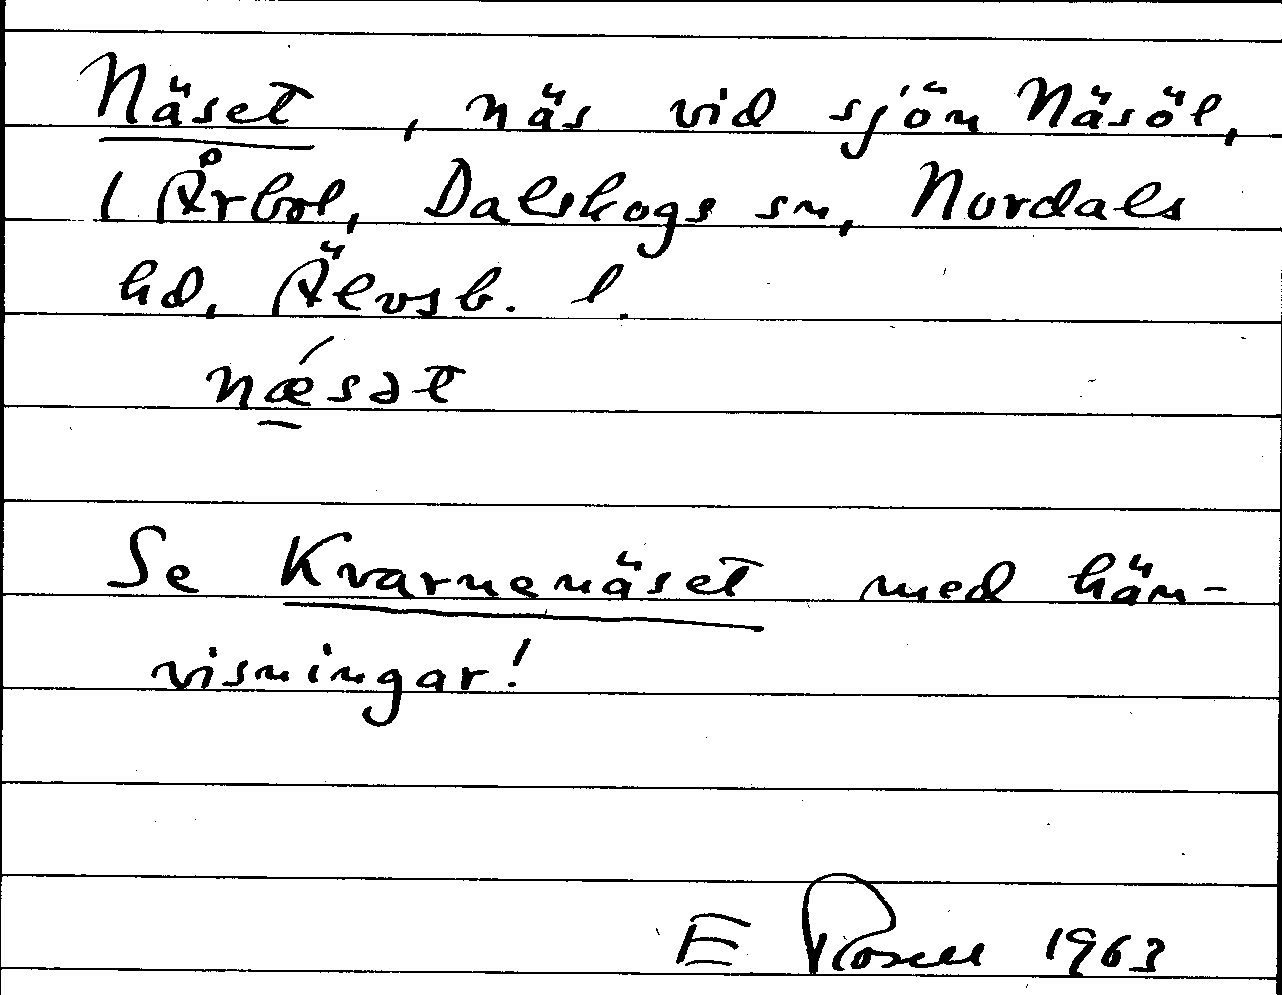 Näset, näs vid sjön Näsöl,
i Årbol, Dalskogs sn, Nordals
hd, Älvsb. l.
nǽ̱sət
Se Kvarnenäset med hän-
visningar!
E Rosell 1963